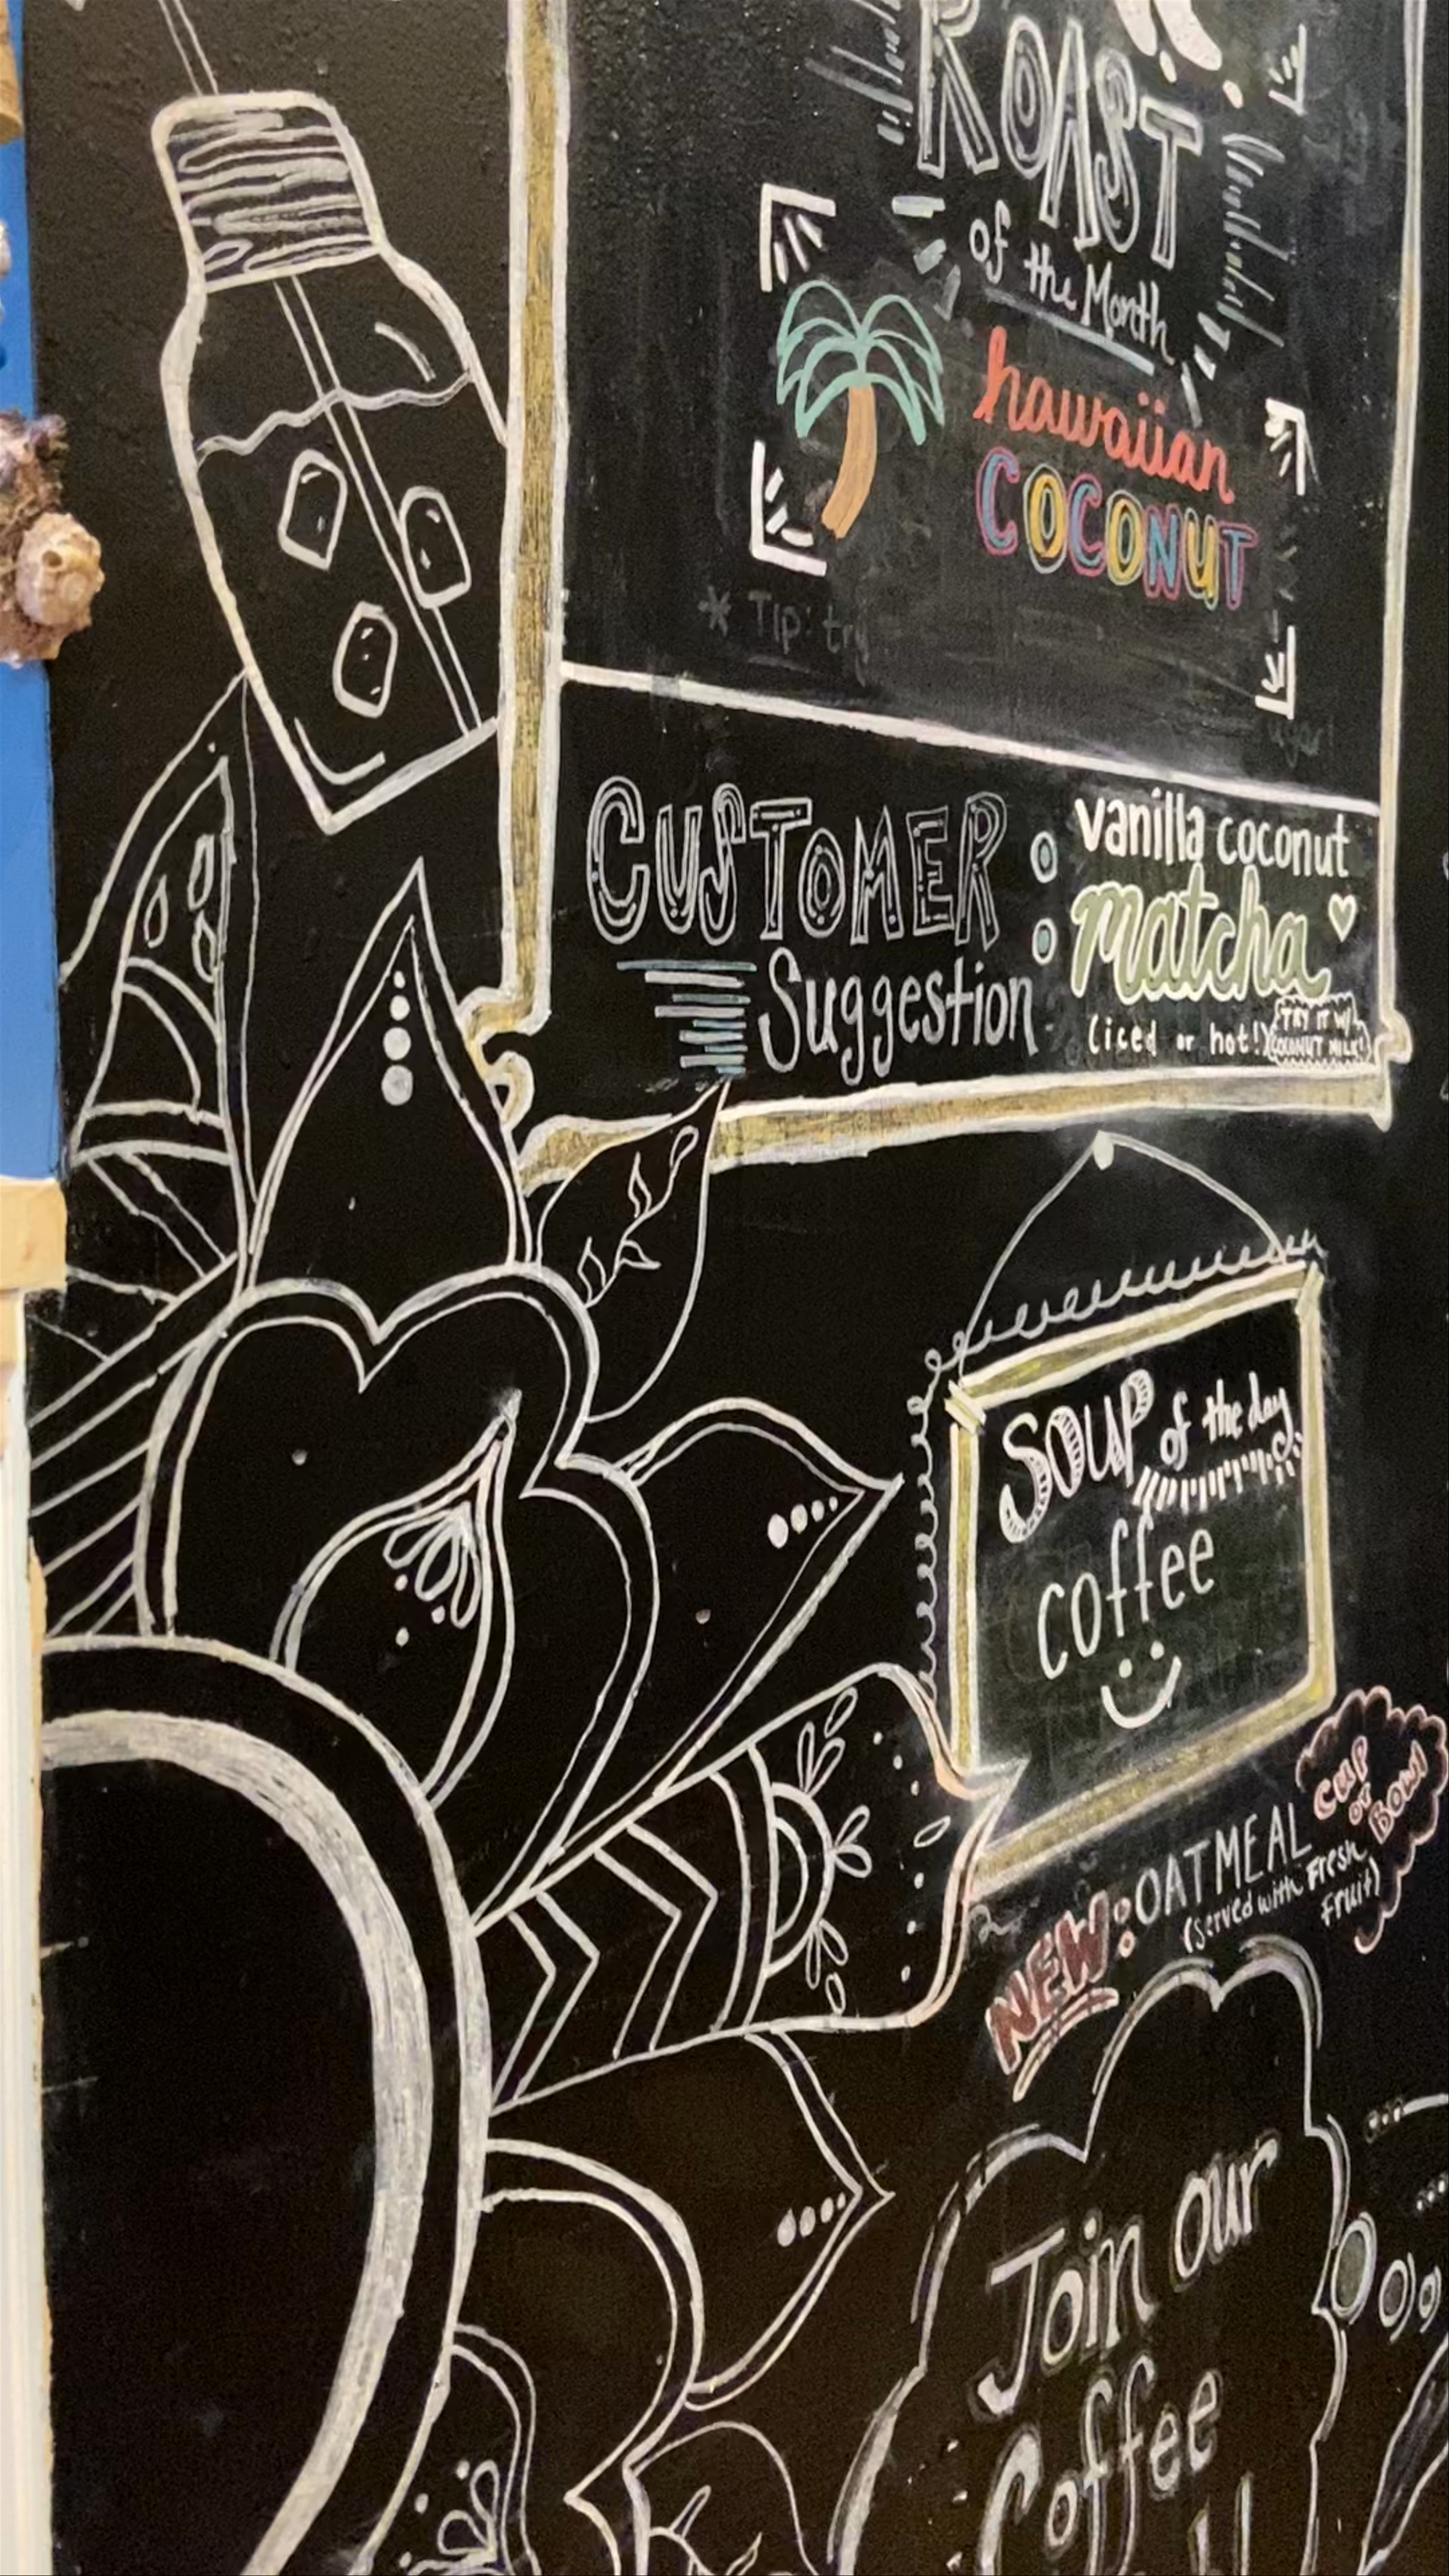 ROAST
of the Month
hawaiian
COCONUT
* Tip: try
CUSTOMER
Suggestion
:
vanilla coconut
matcha
(iced or hot!)
TRY IT W/
COCONUT MILK!
SOUP of the day
coffee
NEW: OATMEAL
(Served with Fresh
Fruit)
CUP
or
BOWl
Join our
Coffee